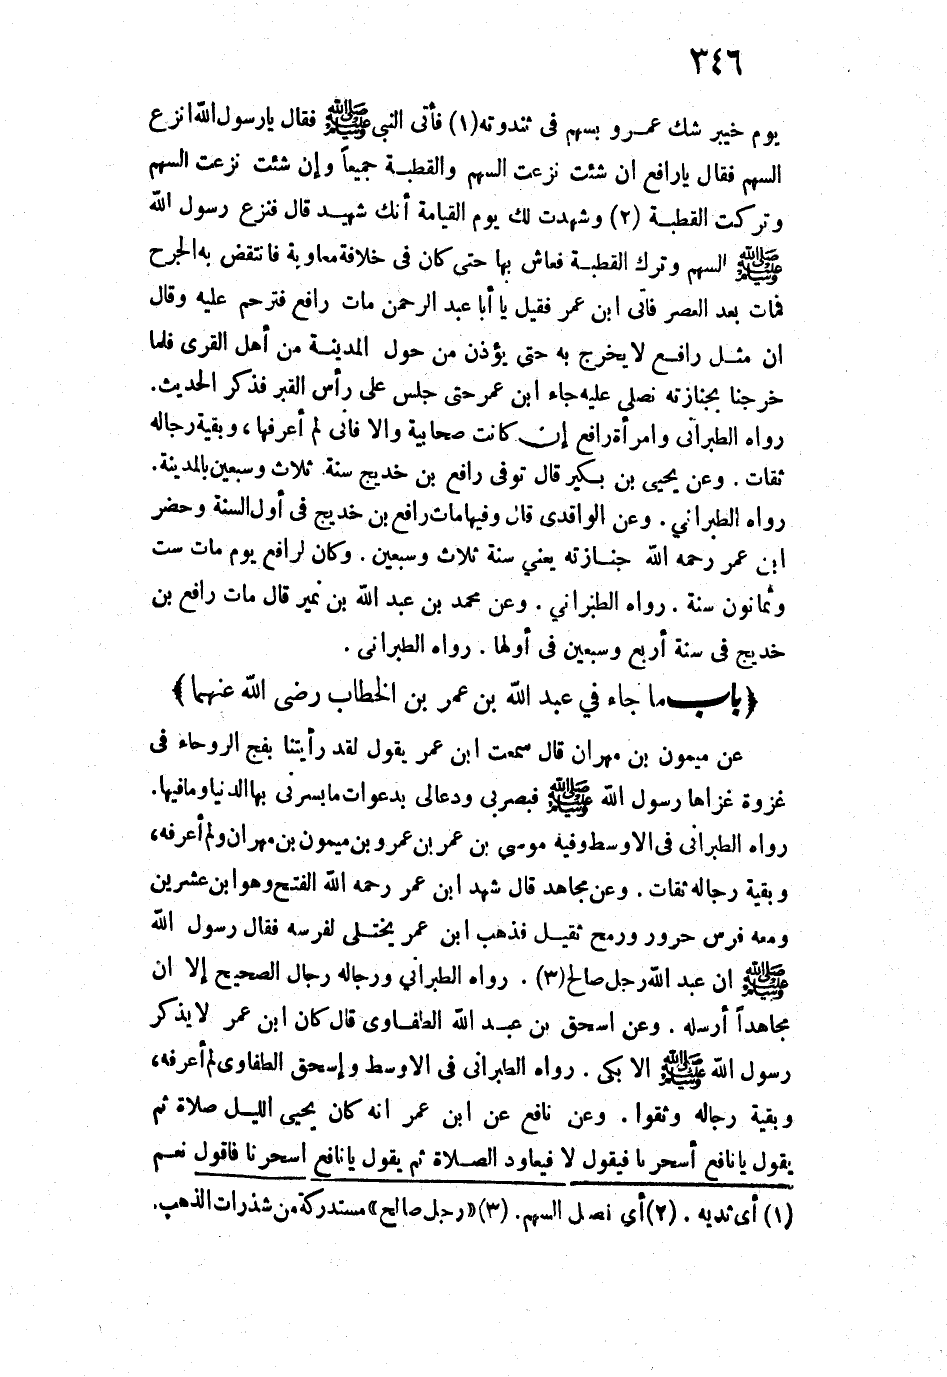 ٣٤٦
يوم خيبر شك عمرو بسهم فى ثندوته(١) فأتى النبى ﷺ فقال يارسول الله انزع
السهم فقال يارافع ان شئت نزعت السهم والقطبة جميعاً وإن شئت نزعت السهم
وتركت القطبة (٢) وشهدت لك يوم القيامة أنك شهيد قال فنزع رسول الله
ﷺ السهم وترك القطبة فعاش بها حتى كان فى خلافة معاوية فانتقض به الجرح
فمات بعد العصر فأتى ابن عمر فقيل يا أبا عبد الرحمن مات رافع فترحم عليه وقال
ان مثل رافع لا يخرج به حتى يؤذن من حول المدينة من أهل القرى فلما
خرجنا بجنازته نصلى عليه جاء ابن عمر حتى جلس على رأس القبر فذكر الحديث.
رواه الطبرانى وامرأة رافع إن كانت صحابية والا فانى لم أعرفها ، وبقية رجاله
ثقات . وعن يحيى بن بكير قال توفى رافع بن خديج سنة ثلاث وسبعين بالمدينة.
رواه الطبراني . وعن الواقدى قال وفيها مات رافع بن خديج فى أول السنة وحضر
ابن عمر رحمه الله جنازته يعني سنة ثلاث وسبعين . وكان لرافع يوم مات ست
وثمانون سنة . رواه الطبراني . وعن محمد بن عبد الله بن نمير قال مات رافع بن
خديج فى سنة أربع وسبعين فى أولها . رواه الطبرانى .
﴿باب ما جاء في عبد الله بن عمر بن الخطاب رضى الله عنهما﴾
عن ميمون بن مهران قال سمعت ابن عمر يقول لقد رأيتنا بفج الروحاء فى
غزوة غزاها رسول الله ﷺ فبصربي ودعالى بدعوات ما يسرنى بها الدنيا وما فيها.
رواه الطبرانى فى الاوسط وفيه موسى بن عمر بن عمرو بن ميمون بن مهران ولم أعرفه،
وبقية رجاله ثقات . وعن مجاهد قال شهد ابن عمر رحمه الله الفتح وهو ابن عشرين
ومعه فرس حرور ورمح ثقيل فذهب ابن عمر يختلى لفرسه فقال رسول الله
ﷺ ان عبد الله رجل صالح (٣) . رواه الطبراني ورجاله رجال الصحيح إلا ان
مجاهداً أرسله . وعن اسحق بن عبد الله الطفاوى قال كان ابن عمر لا يذكر
رسول الله ﷺ الا بكى . رواه الطبرانى فى الاوسط وإسحق الطفاوى لم أعرفه،
وبقية رجاله وثقوا . وعن نافع عن ابن عمر انه كان يحيى الليل صلاة ثم
يقول يانافع أسحرنا فيقول لا فيعاود الصلاة ثم يقول يانافع اسحرنا فاقول نعم
(١) أى ثديه . (٢) أي نصل السهم. (٣) «رجل صالح» مستدركة من شذرات الذهب.